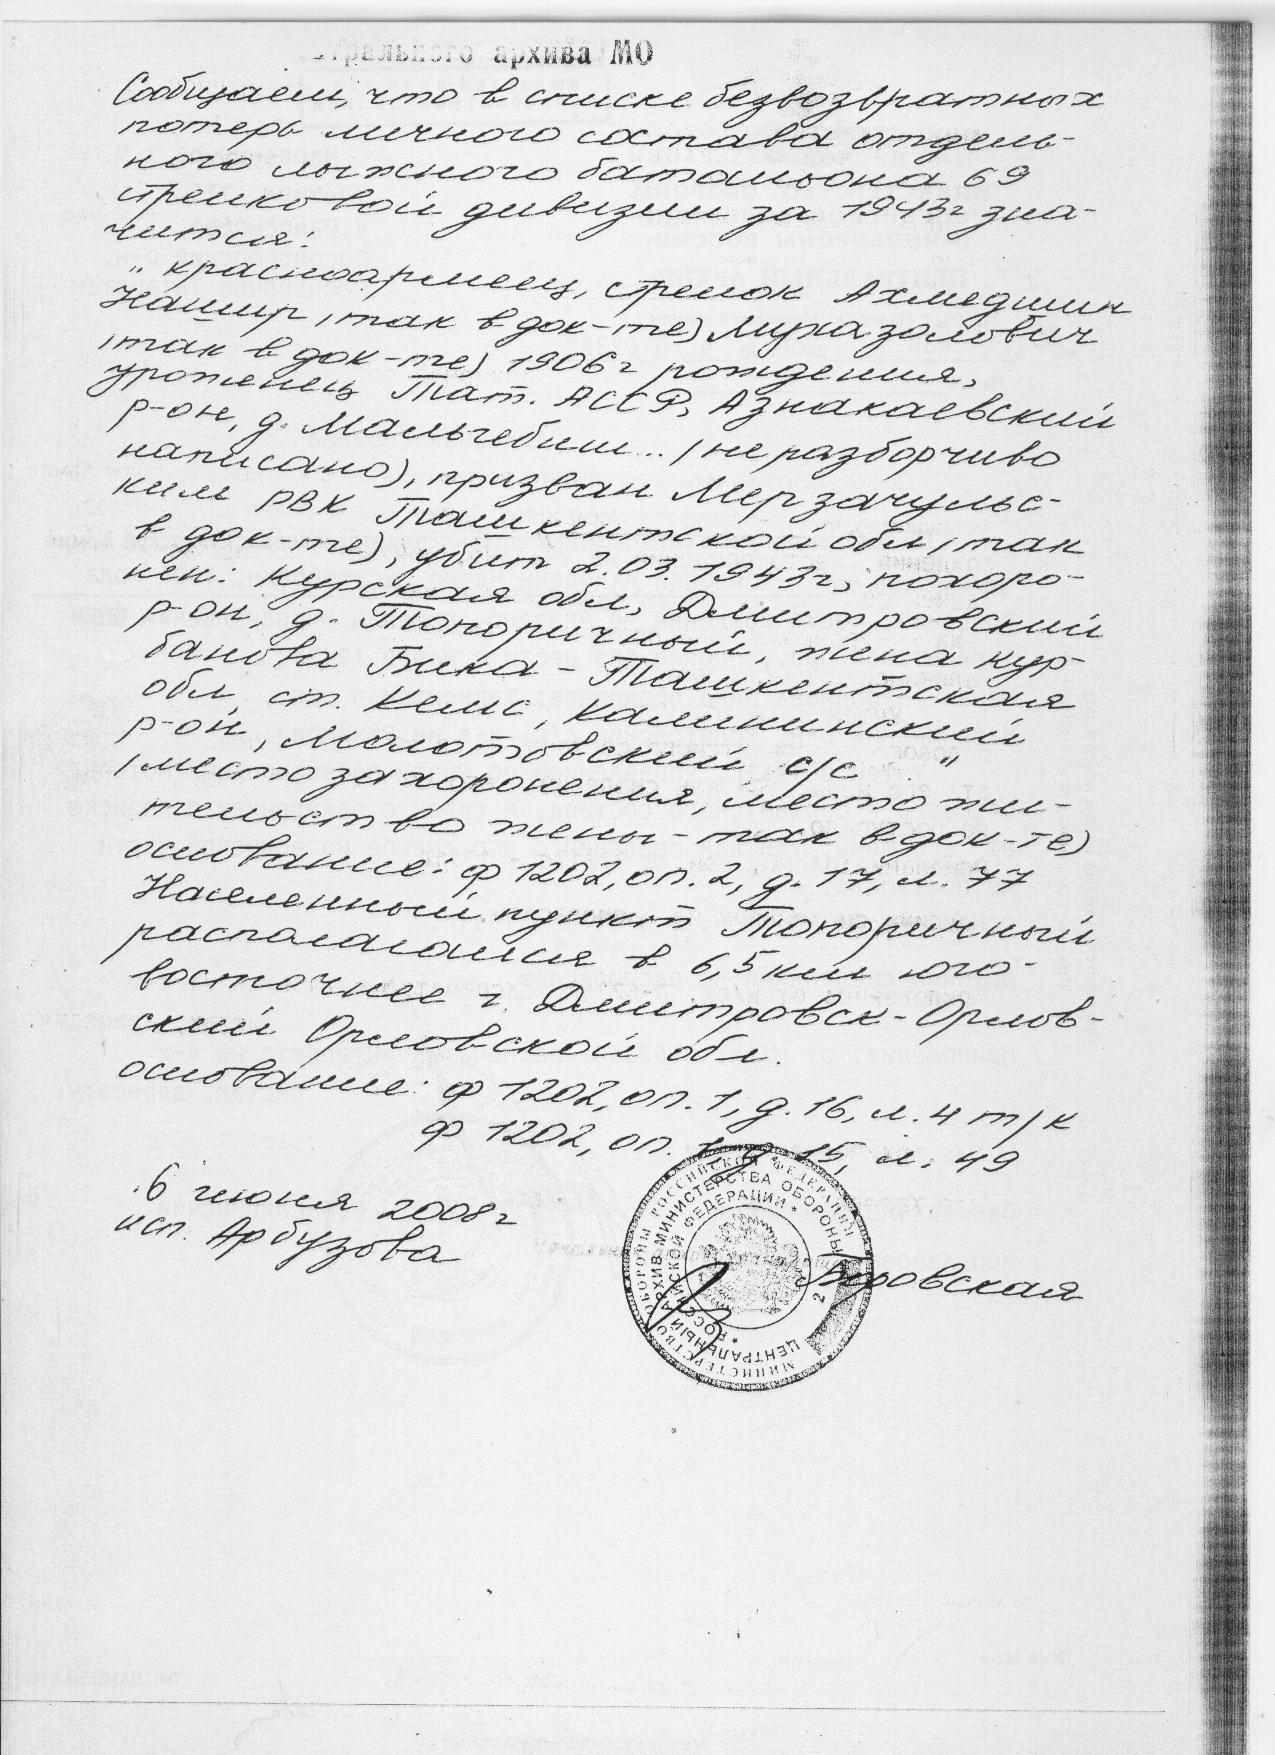 трального архива МО
Сообщаем, что в списке безвозвратных
потерь личного состава отдель-
ного лыжного батальона 69
стрелковой дивизии за 1943г зна-
чится:
" красноармеец, стрелок Ахмедшин
Нашир (так в док-те) Мухазолович
(так в док-те) 1906г рождения,
уроженец Тат. АССР, Азнакаевский
р-он, д. Мальчебиш... (не разборчиво
написано), призван Мерзачульс-
ким РВК Ташкентской обл (так
в док-те), убит 2.03.1943г, похоро-
нен: Курская обл, Дмитровский
р-он, д. Топоричный, жена Кур-
банова Бика - Ташкентская
обл, ст. Келс, Калининский
р-он, Молотовский с/с "
(место захоронения, место жи-
тельство жены - так в док-те)
основание: ф 1202, оп. 2, д. 17, л. 77
Населенный пункт Топоричный
располагался в 6,5 км юго-
восточнее г. Дмитровск-Орлов-
ский Орловской обл.
основание: ф 1202, оп. 1, д. 16, л. 4 т/к
ф 1202, оп. 1, д. 15, л. 49
6 июня 2008г
исп. Арбузова
МИНИСТЕРСТВО ОБОРОНЫ РОССИЙСКОЙ ФЕДЕРАЦИИ
ЦЕНТРАЛЬНЫЙ АРХИВ МИНИСТЕРСТВА ОБОРОНЫ
РОССИЙСКОЙ ФЕДЕРАЦИИ
2